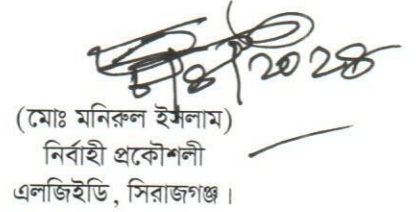 (মোঃ মনিরুল ইসলাম)
নির্বাহী প্রকৌশলী
এলজিইডি, সিরাজগঞ্জ।